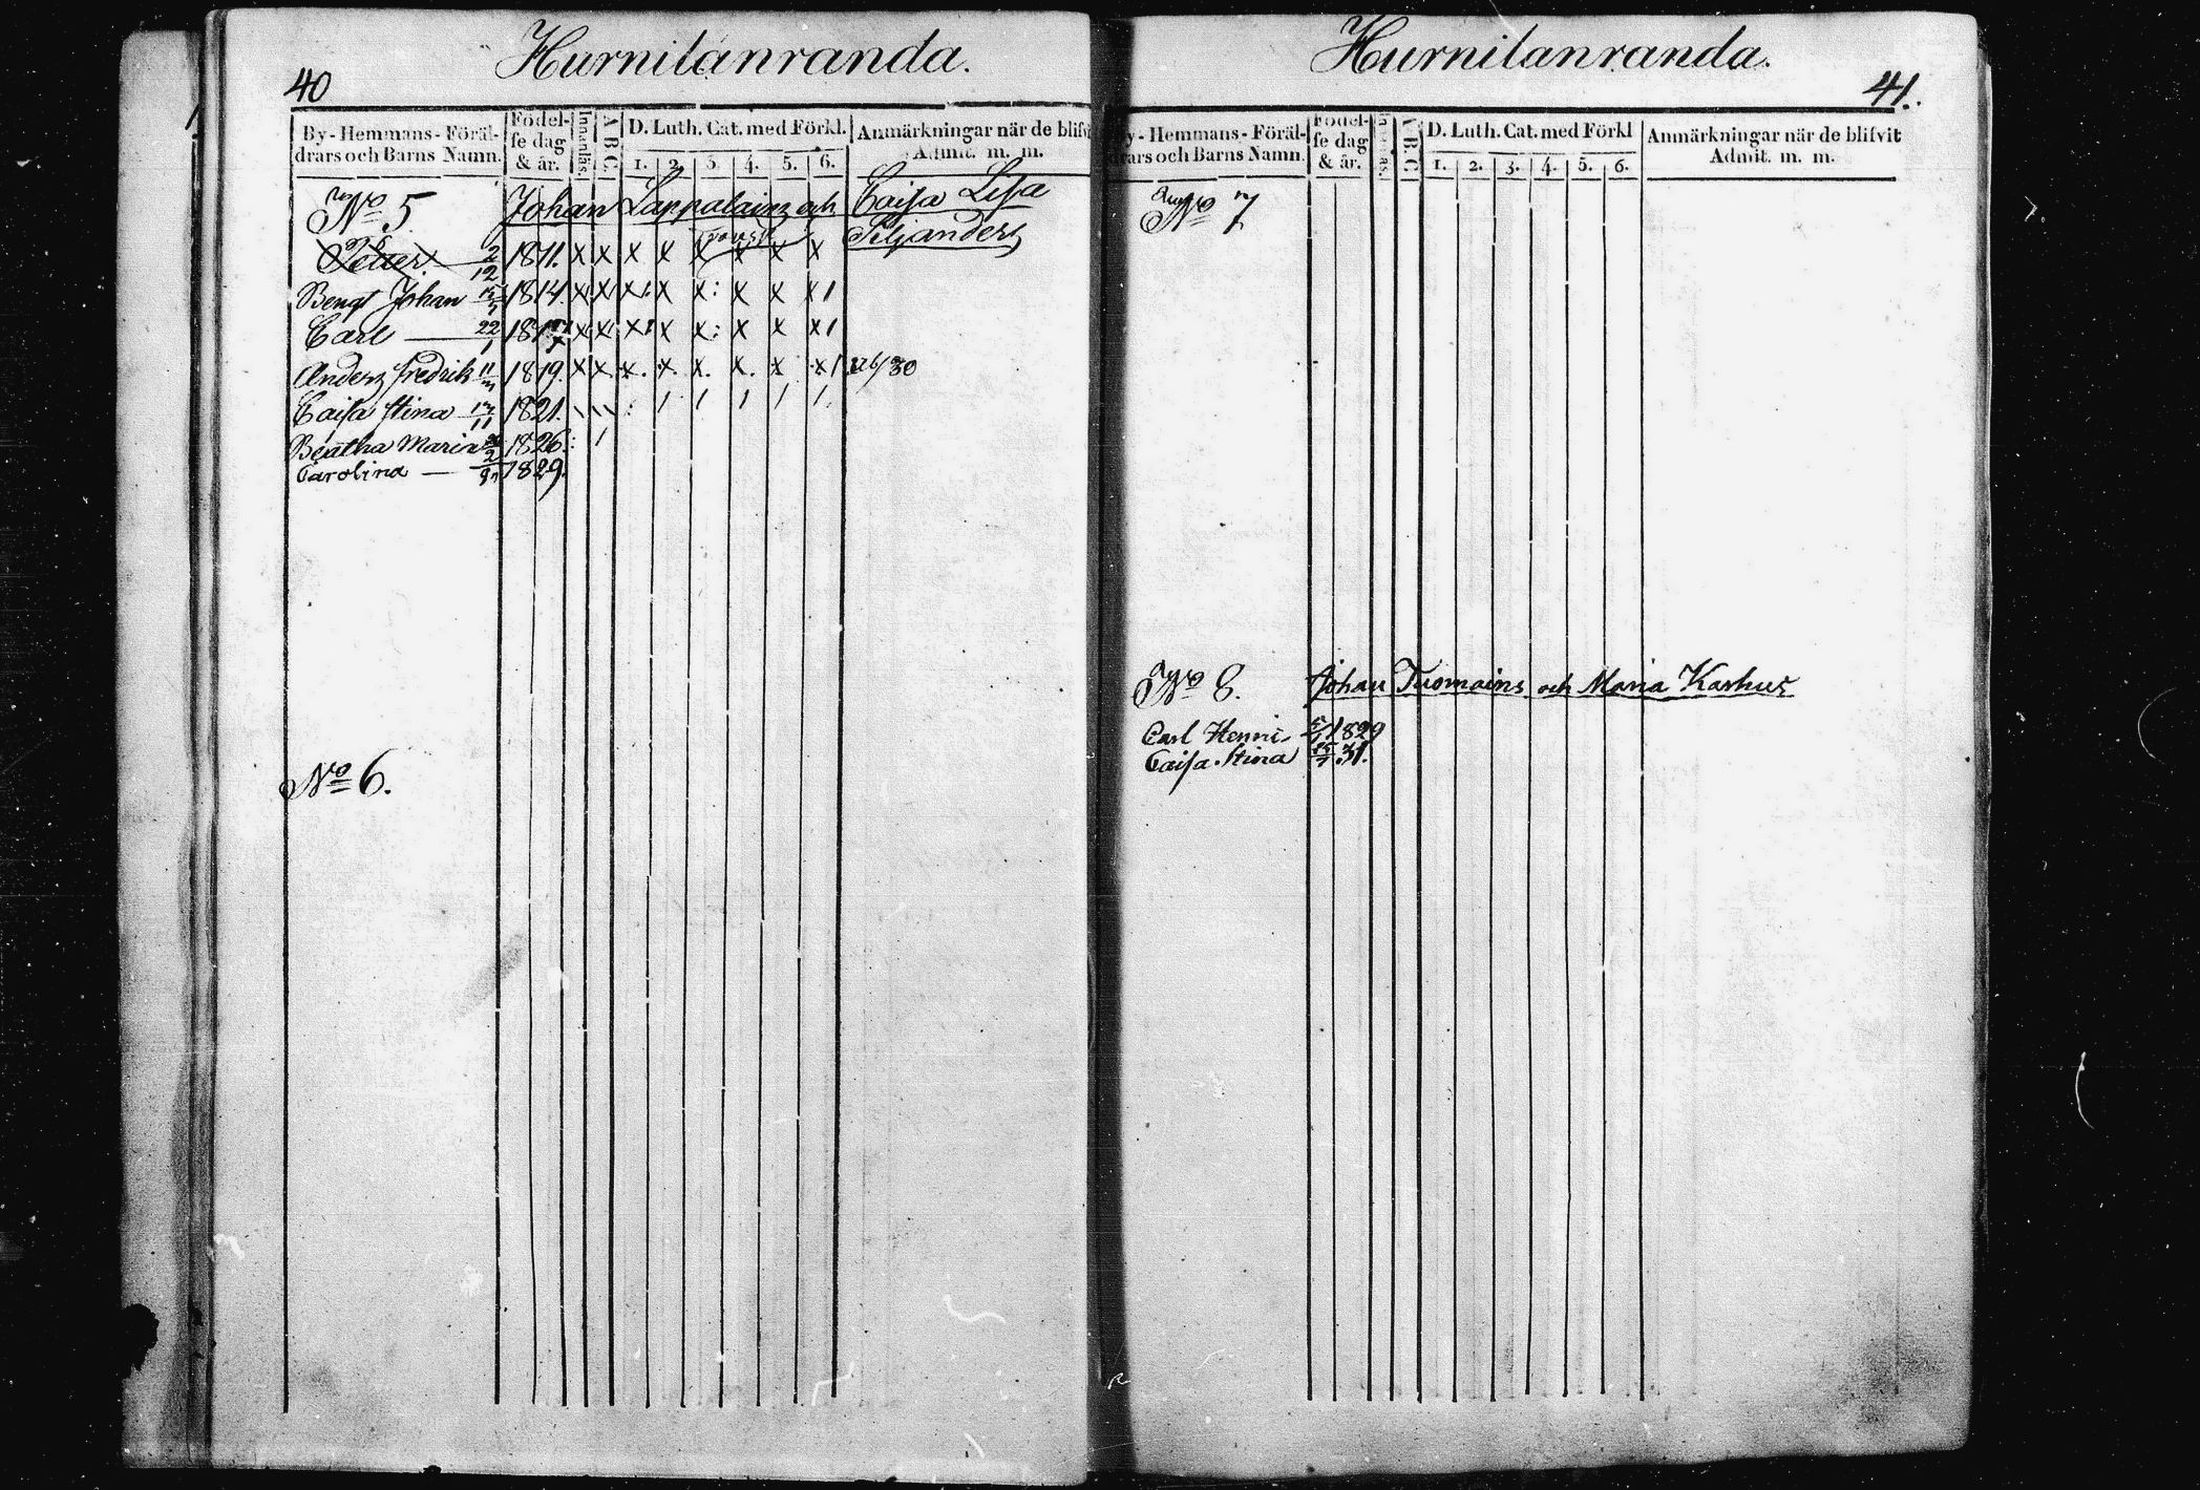 Hurnilanranda.
40
By-Hemmans-Föräl-
drars och Barns Namn.
Födel-
se dag
& år.
Innanläs.
A B C.
D. Luth. Cat. med Förkl.
1. 2. 3. 4. 5. 6.
Anmärkningar när de blifvi
Admit. m. m.
No 5. Johan Lappalainen och Caisa Lisa
Siljander
Petter 2/12 1811. x x x x x x x x
Bengt Johan 1814. x x x x x x x x 1
Carl 22/1 x x x x x x x x 1
Anders Fredrik 1819. x x x x x x x x 1
Caisa Stina 1821.
Beatha Maria 1826.
Carolina — 1829.
No 6.
Hurnilanranda.
41.
y-Hemmans-Föräl-
drars och Barns Namn.
Födel-
se dag
& år.
A.B.C.
D. Luth. Cat. med Förkl
1. 2. 3. 4. 5. 6.
Anmärkningar när de blifvit
Admit. m. m.
No 7
No 8. Johan Tuomains och Maria Karhus
Carl Henric 1829
Caisa Stina 31.